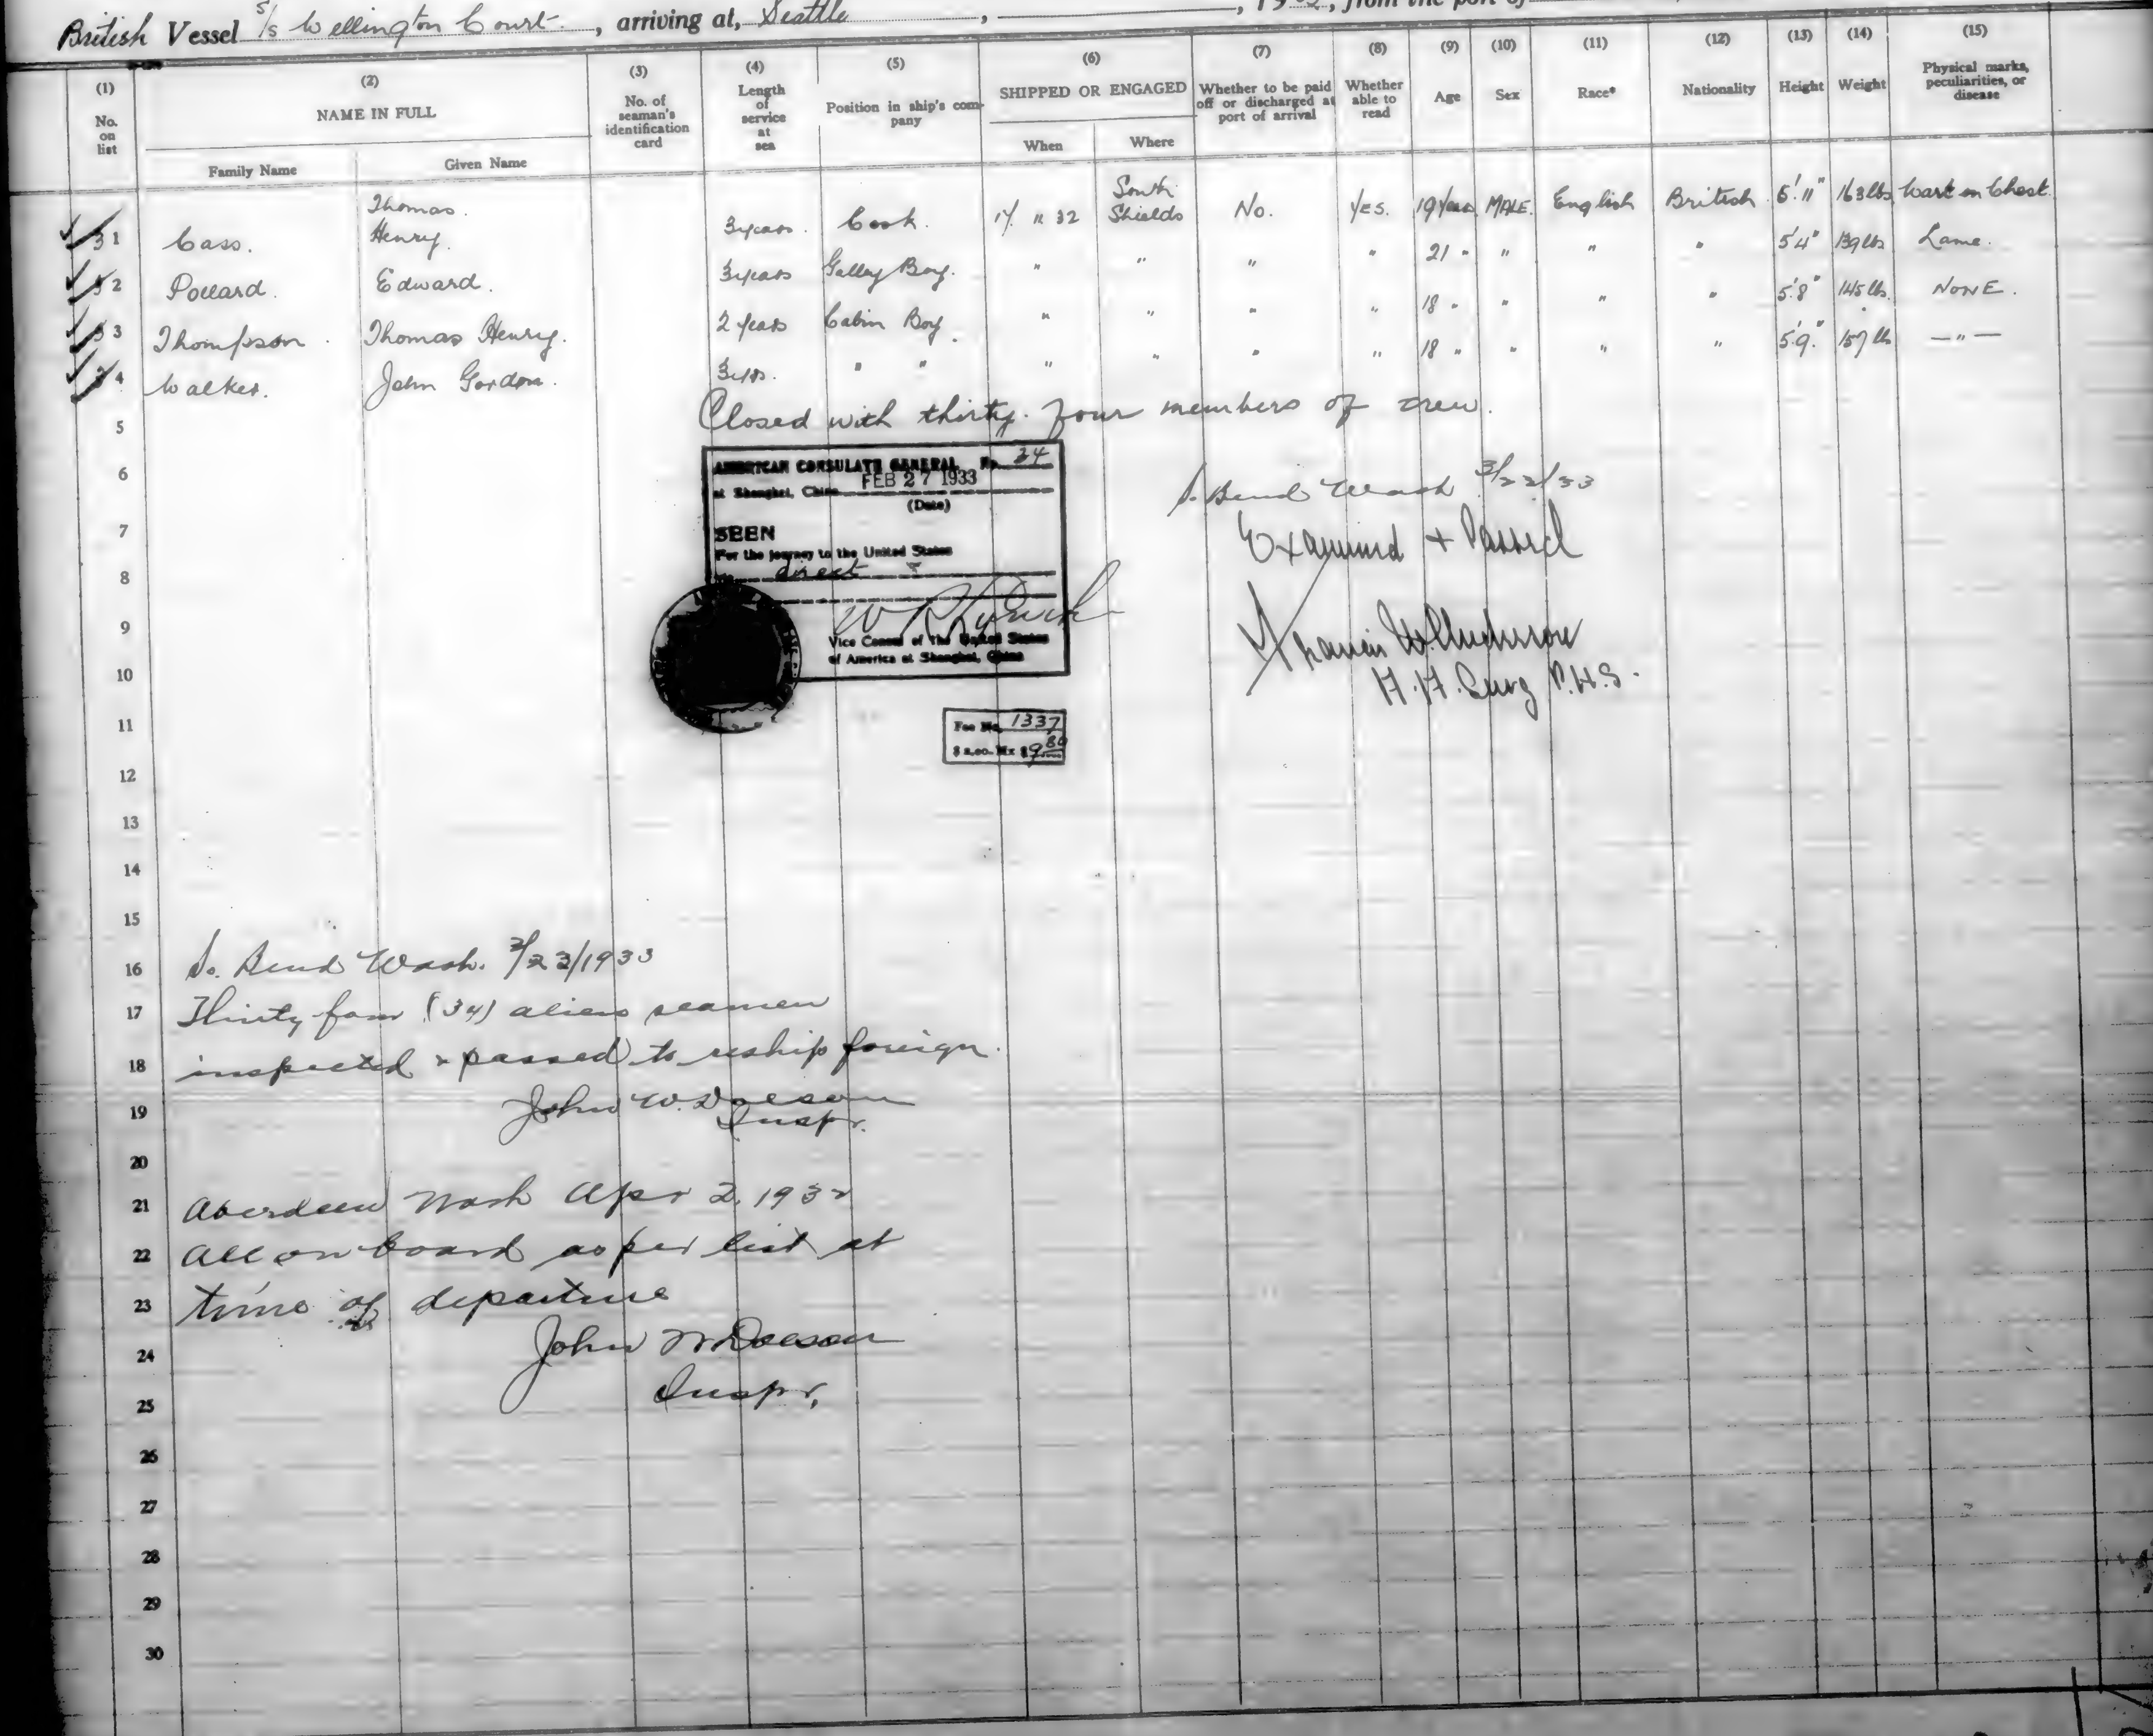 British Vessel S/S Wellington Court, arriving at, Seattle, , 19 , from the port of
(1) (2) (3) (4) (5) (6) (7) (8) (9) (10) (11) (12) (13) (14) (15)
No. on list
NAME IN FULL
Family Name Given Name
No. of seaman's identification card
Length of service at sea
Position in ship's company
SHIPPED OR ENGAGED
When Where
Whether to be paid off or discharged at port of arrival
Whether able to read
Age
Sex
Race*
Nationality
Height
Weight
Physical marks, peculiarities, or disease
31 Cass. Thomas. Henry. 3 years. Cook. 17 11 32 South Shields No. Yes. 19 years MALE. English British 5'.11" 163 lbs Wart on Chest.
32 Pollard. Edward. 3 years Galley Boy. " " " " 21 " " " " 5'4" 139 lbs Lame.
33 Thompson. Thomas Henry. 2 years Cabin Boy. " " " " 18 " " " " 5'8" 145 lbs. NONE.
34 Walker. John Gordon. 3 yrs. " " " " " " 18 " " " " 5'9." 157 lb — " —
5 Closed with thirty-four members of crew.
6
7
8
9
10
11
12
13
14
15
AMERICAN CONSULATE GENERAL No. 34
at Shanghai, China FEB 27 1933
(Date)
SEEN
For the journey to the United States
direct
Vice Consul of The United States
of America at Shanghai, China
Fee No. 1337
S. Bend Wash 3/22/33
Examined + Passed
P.H.S.
16 So. Bend Wash. 3/23/1933
17 Thirty four (34) aliens seamen
18 inspected & passed to reship foreign.
19 John W.
Inspr.
20
21 Aberdeen Wash Apr 2, 193
22 All on board as per list at
23 time of departure
24 John W
25 Inspr,
26
27
28
29
30